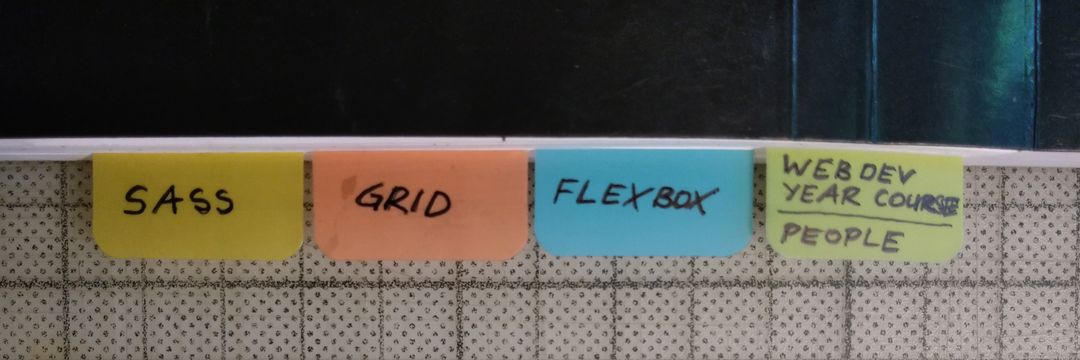 SASS
GRID
FLEXBOX
WEB DEV
YEAR COURSE
PEOPLE